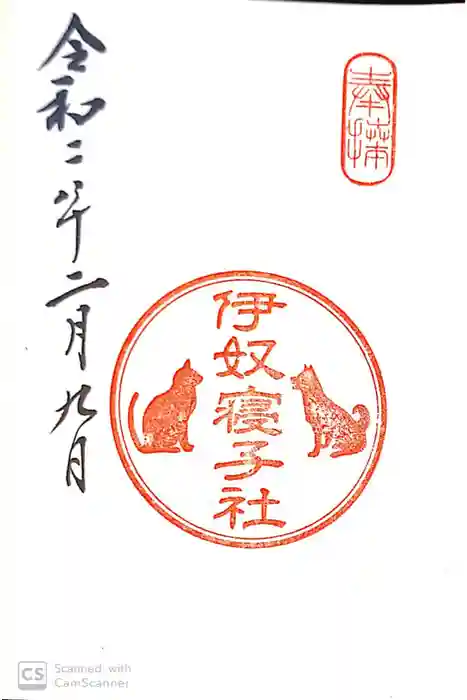 奉拝
伊奴寝子社
令和二年二月九日
CS Scanned with
CamScanner